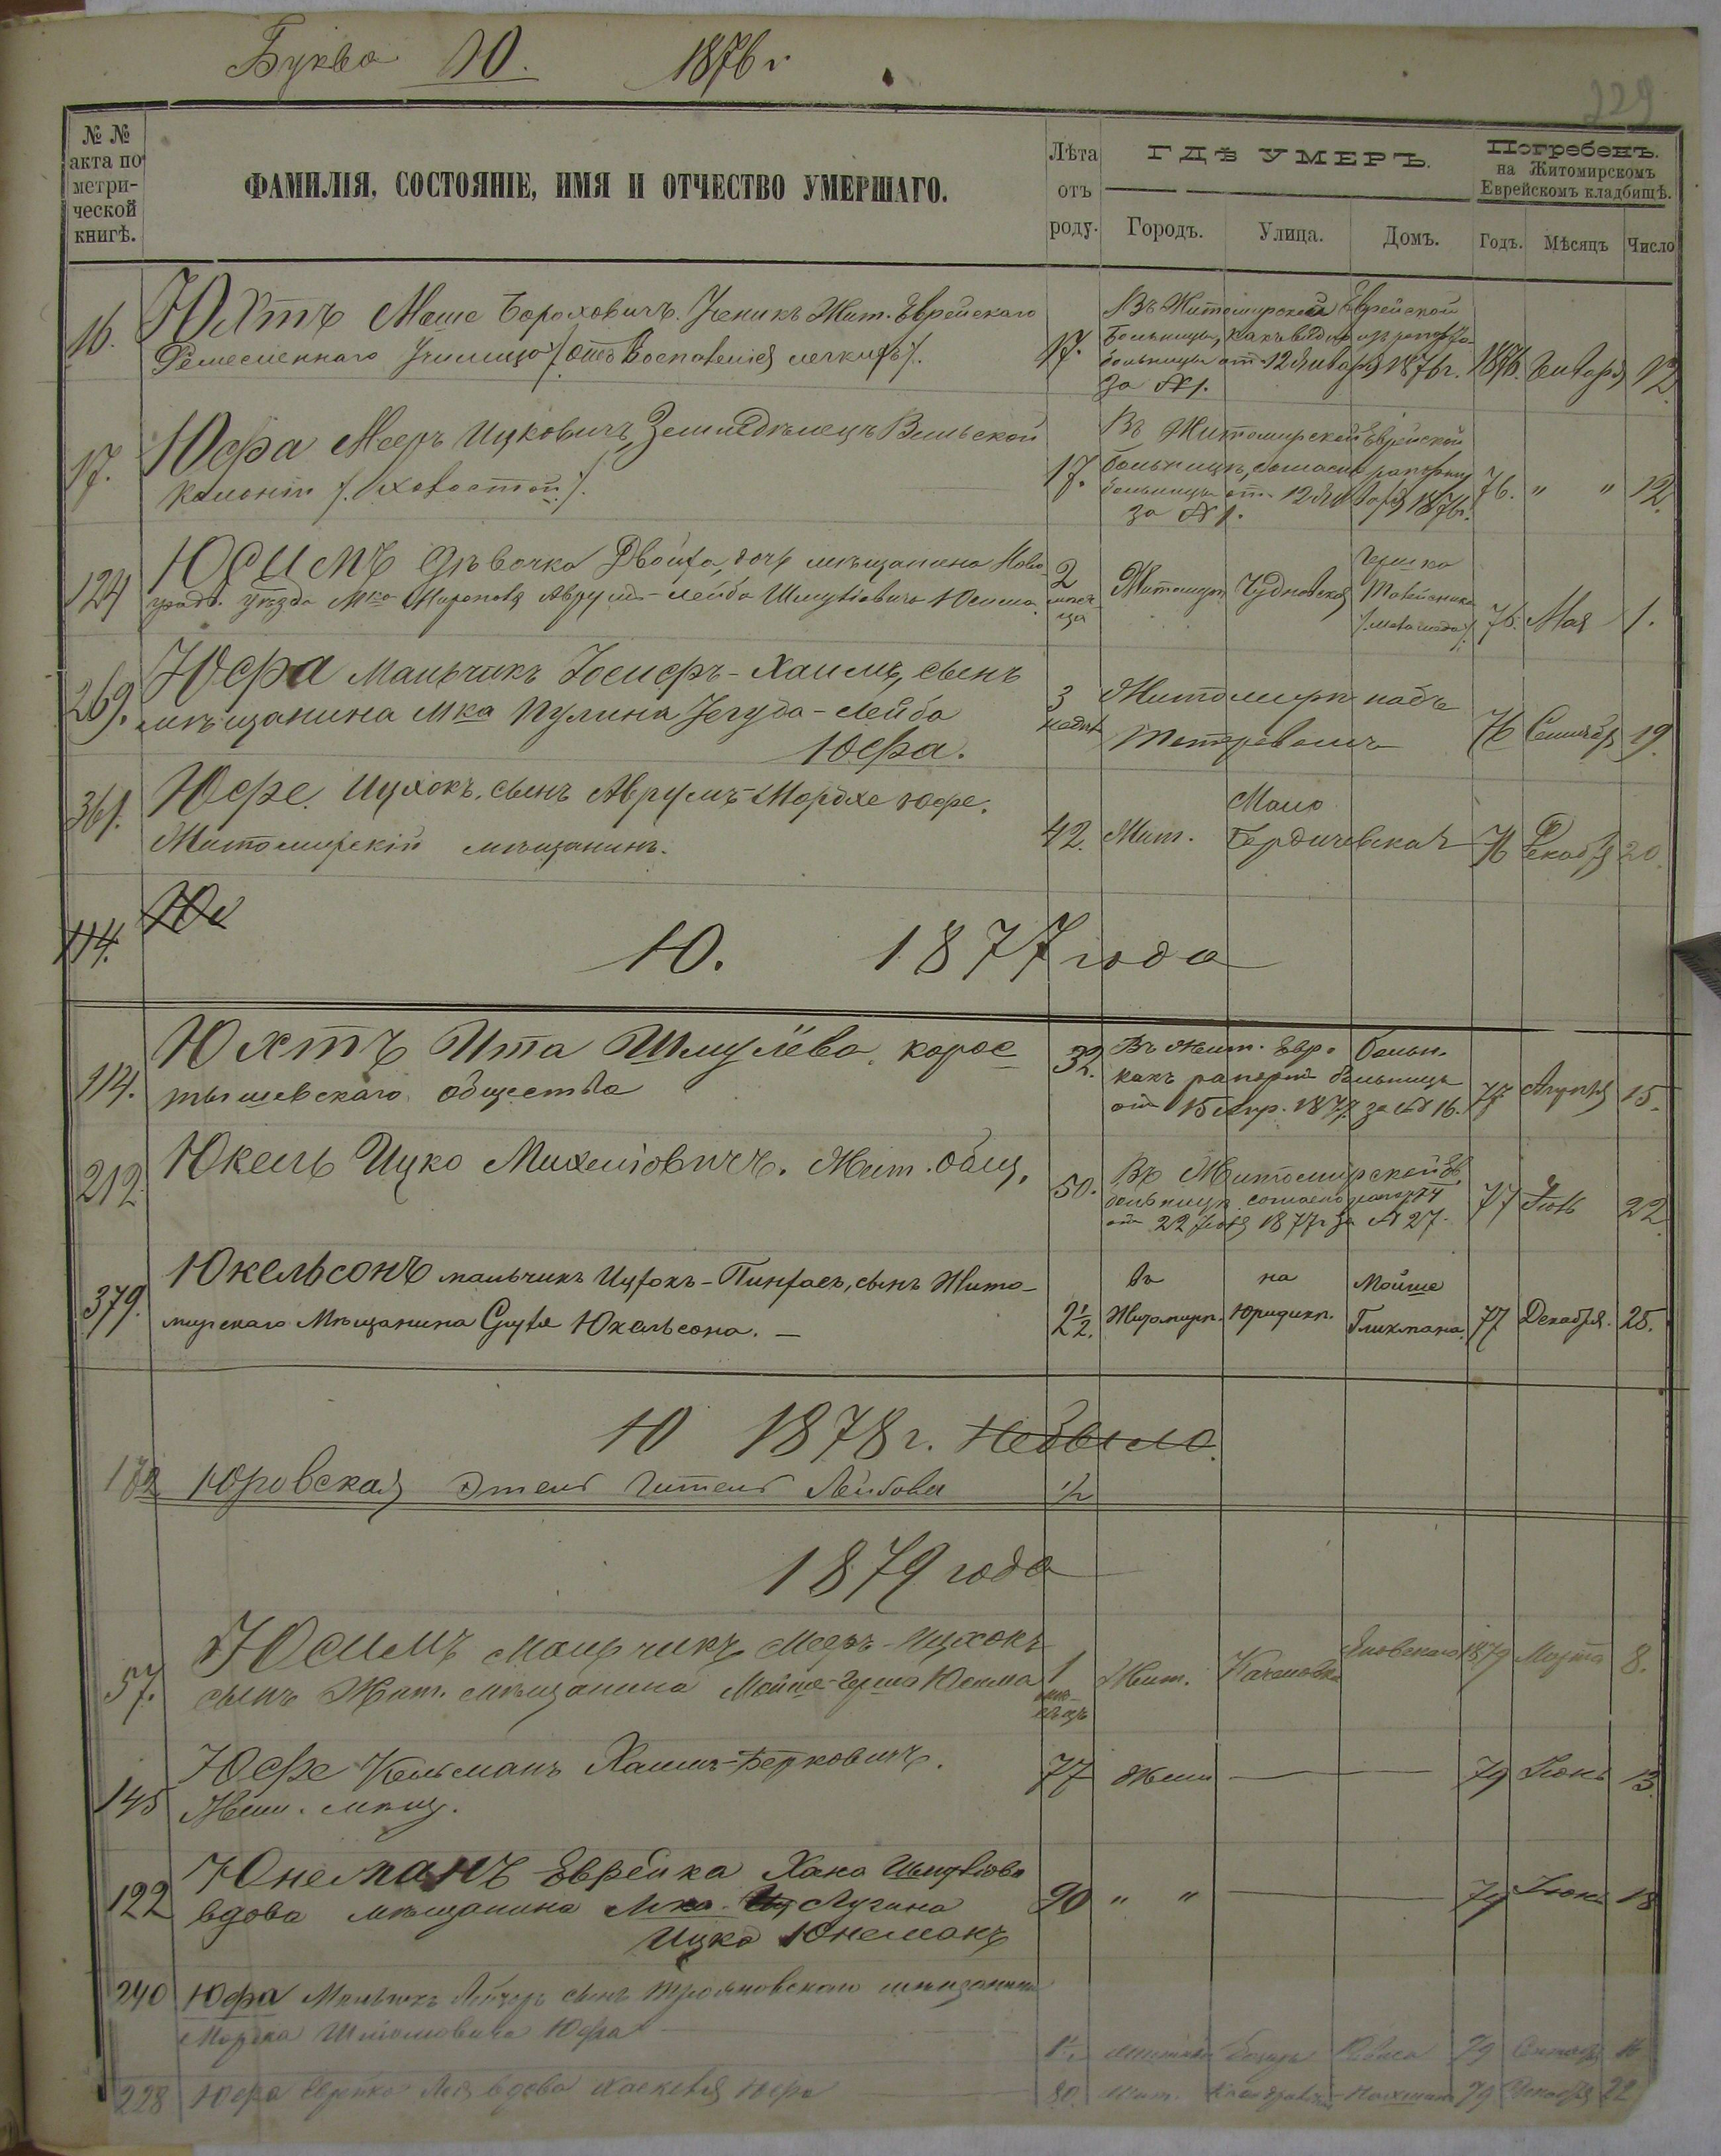 Буква Ю. 1876 г
229
№ № акта по метри- ческой книгѣ.
ФАМИЛІЯ, СОСТОЯНІЕ, ИМЯ И ОТЧЕСТВО УМЕРШАГО.
Лѣта отъ роду.
ГДѢ УМЕРЪ.
Городъ. Улица. Домъ.
Погребенъ.
на Житомирскомъ
Еврейскомъ кладбищѣ.
Годъ. Мѣсяцъ Число
16. Юхтъ Моше Бороховичъ. Ученикъ Жит. Еврейскаго
Ремесленнаго Училища /. отъ Воспаленія легкихъ /.
17. Въ Житомирской Еврейской
больницы, какъ видно изъ рапорта
больницы отъ 12 Января 1876 г.
за № 1.
1876. Января 12
17. Юфа Мееръ Ицковичъ, Земледѣлецъ Вильской
колоніи
17. Въ Житомирской Еврейской
больницѣ, согласно рапорту
больницы отъ 12 Января 1876 г.
за № 1.
76. " " 12.
124 Юсимъ дѣвочка Двойра, дочь мѣщанина Ново
уѣзда Мка Мирополя Аврумъ-Лейба Шмулiовича Юсима
2 мѣсяца Житомиръ Чудновская Гершко
76. Мая 1.
269. Юфа мальчикъ Іосифъ-Хаимъ, сынъ
мѣщанина Мка Пулина Іегуда-Лейба
Юфа.
3 недѣл Житомиръ надъ
Тетеревомъ
76 Сентября 19.
361. Юфе. Ицхокъ, сынъ Аврумъ-Мордхе Юфе.
Житомирскій мѣщанинъ.
42. Жит. Мало
Бердичевская 76 Декабря 20.
114. Юх
Ю. 1877 года
114. Юхтъ Ита Шмулёва корос
тышевскаго общества
32. Въ жит. Евр. больн.
какъ рапортъ больницы
отъ 15 Апр. 1877 за № 16.
77 Апрѣля 15.
212. Юкель Ицко Михелiовичъ. Жит. общ.
50. Въ Житомирской Ев.
больницѣ согласно рапорту
отъ 22 Іюля 1877 г за № 27.
77 22
379. Юкельсонъ мальчикъ Ицхокъ-Пинхасъ, сынъ Жито-
мирскаго Мѣщанина Сруля Юкельсона. —
2 1/2. въ Житомирѣ. на Юридикѣ. Мойше Гликмана. 77 Декабря. 25.
Ю 1878 г. Небыло.
172 Юровская Этель Гитель Лейбова 1/2
1879 года
57. Юсимъ мальчикъ Мееръ-Ицхокъ
сынъ Жит. мѣщанина Мойше-Герша Юсима
1 мѣсяцъ Жит. 1879 Марта 8.
145 Юфе Кельманъ Хаимъ-Берковичъ.
Жит. мѣщ.
77 Жит — — 79 Іюнь 13.
122 Юнеманъ Еврейка Хана Шмулiова
вдова мѣщанина Мка. Лугина
Ицка Юнеманъ
90 " " — — 79 Іюнь 18
240 Юфа Мальчикъ Лейзеръ сынъ Трояновскаго мѣщанина
Мордка Шлiомовича Юфа
79 Сентября
228 Юфа Еврейка Лея вдова Юфа
80. Жит. 79 Декабря 22